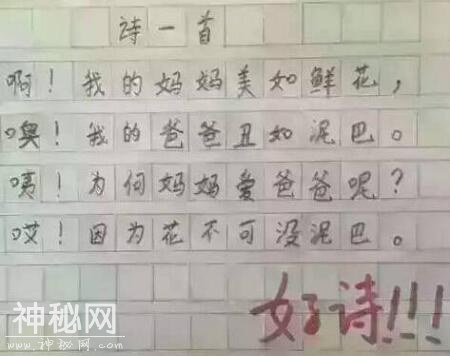 诗一首
啊！我的妈妈美如鲜花，
噢！我的爸爸丑如泥巴。
咦！为何妈妈爱爸爸呢？
哎！因为花不可没泥巴。
好诗!!!
神秘网
www.shenmw.com